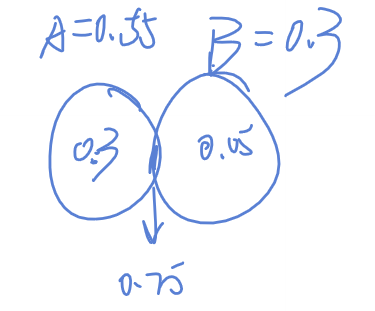 A=0.55 B=0.3
0.3 0.05
0.25